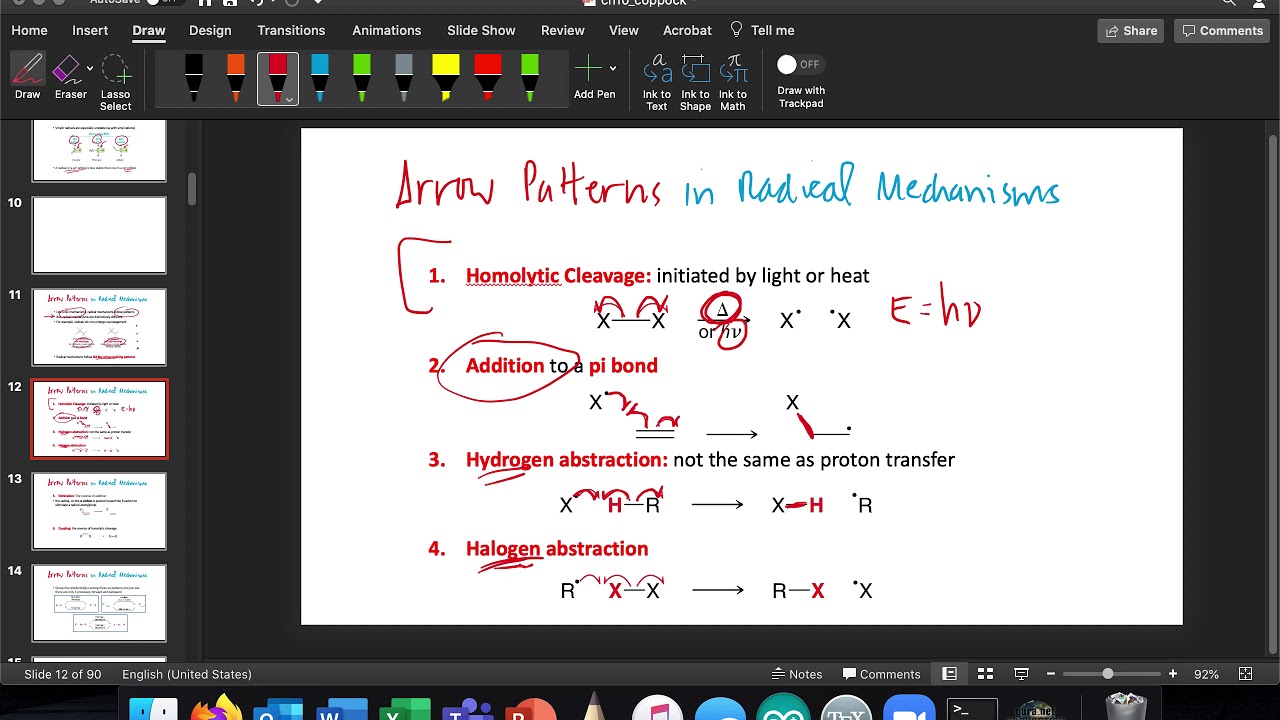 AutoSave OFF
ch10_coppock
Home Insert Draw Design Transitions Animations Slide Show Review View Acrobat Tell me
Share Comments
Draw Eraser Lasso Select Add Pen Ink to Text Ink to Shape Ink to Math OFF Draw with Trackpad
10
11
12
13
14
15
Arrow Patterns in Radical Mechanisms
1. Homolytic Cleavage: initiated by light or heat
X—X Δ or hν → X• •X E = hν
2. Addition to a pi bond
X• X
3. Hydrogen abstraction: not the same as proton transfer
X• H—R → X—H •R
4. Halogen abstraction
R• X—X → R—X •X
Slide 12 of 90 English (United States) Notes Comments 92%